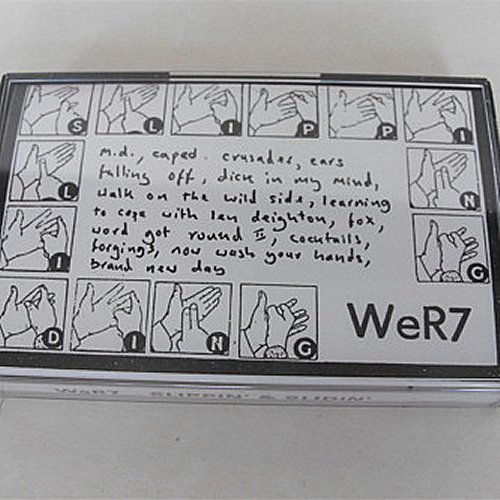 S L I P P I
N
G
L
I
D I N G
m.d., caped. crusader, ears
falling off, dick in my mind,
walk on the wild side, learning
to cope with len deighton, fox,
word got round II, cocktails,
forgings, now wash your hands,
brand new day
WeR7
WeR7 SLIPPIN' & SLIDIN'